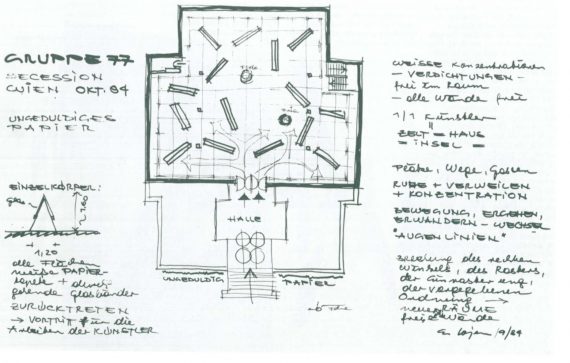 GRUPPE 77
SECESSION
WIEN OKT. 84
UNGEDULDIGES
PAPIER
EINZELKÖRPER:
1,20
alle Flächen
weiße PAPIER-
gehende Glasbänder
ZURÜCKTRETEN
→ VORTRITT für die
Arbeiten der KÜNSTLER
HALLE
UNGEDULDIG
PAPIER
WEISSE Konzentrationen
– VERDICHTUNGEN –
frei im Raum
– alle Wände frei
1/1 Künstler
ZELT = HAUS
= INSEL =
Plätze, Wege, Gassen
RUHE + VERWEILEN
+ KONZENTRATION
BEWEGUNG, ERGEHEN,
ERWANDERN – WECHSEL
"AUGENLINIEN"
Brechung des rechten
Winkels, des Rasters,
der
der vorgegebenen
Ordnung →
neue RÄUME
freie Wände
9/84